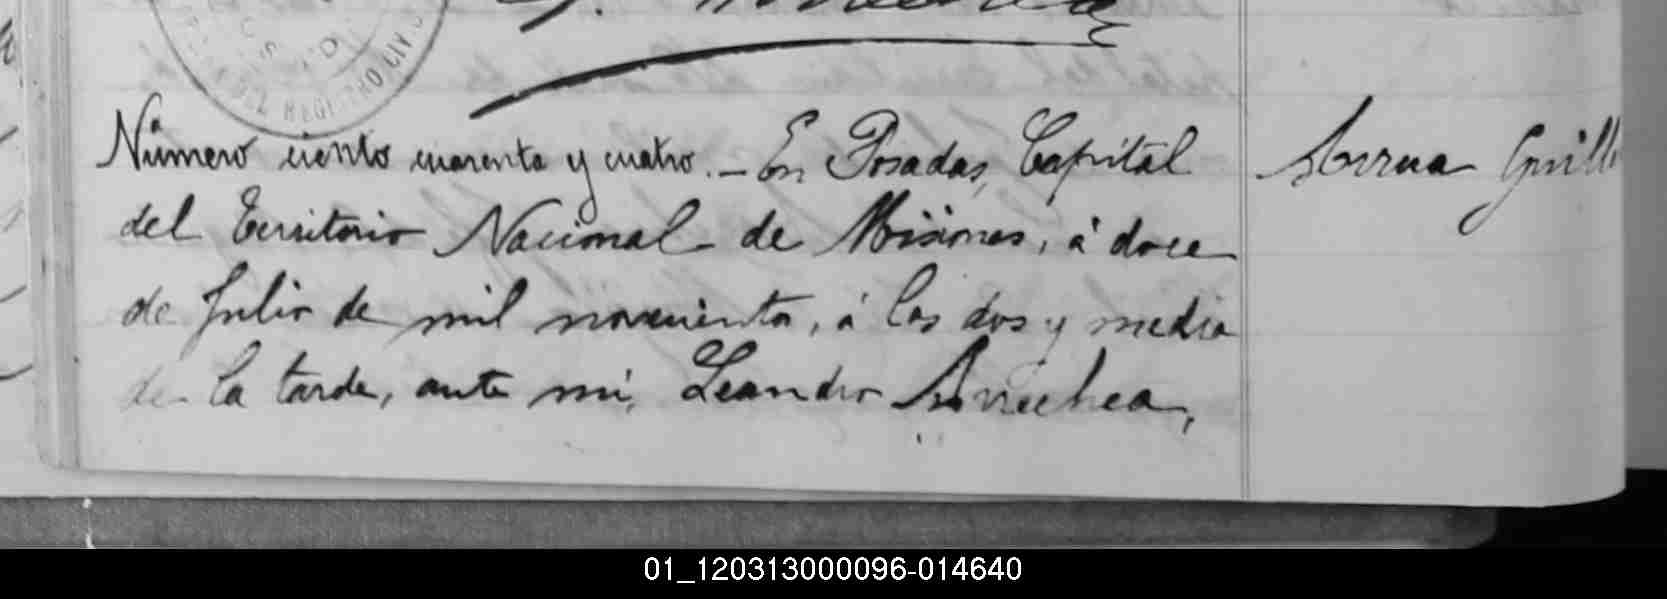 DEL REGISTRO CIV
Número ciento cuarenta y cuatro. - En Posadas, Capital
del Territorio Nacional de Misiones, á doce
de Julio de mil novecientos, á las dos y media
de la tarde, ante mi, Leandro Arrechea,
Arrua Guill
01_120313000096-014640